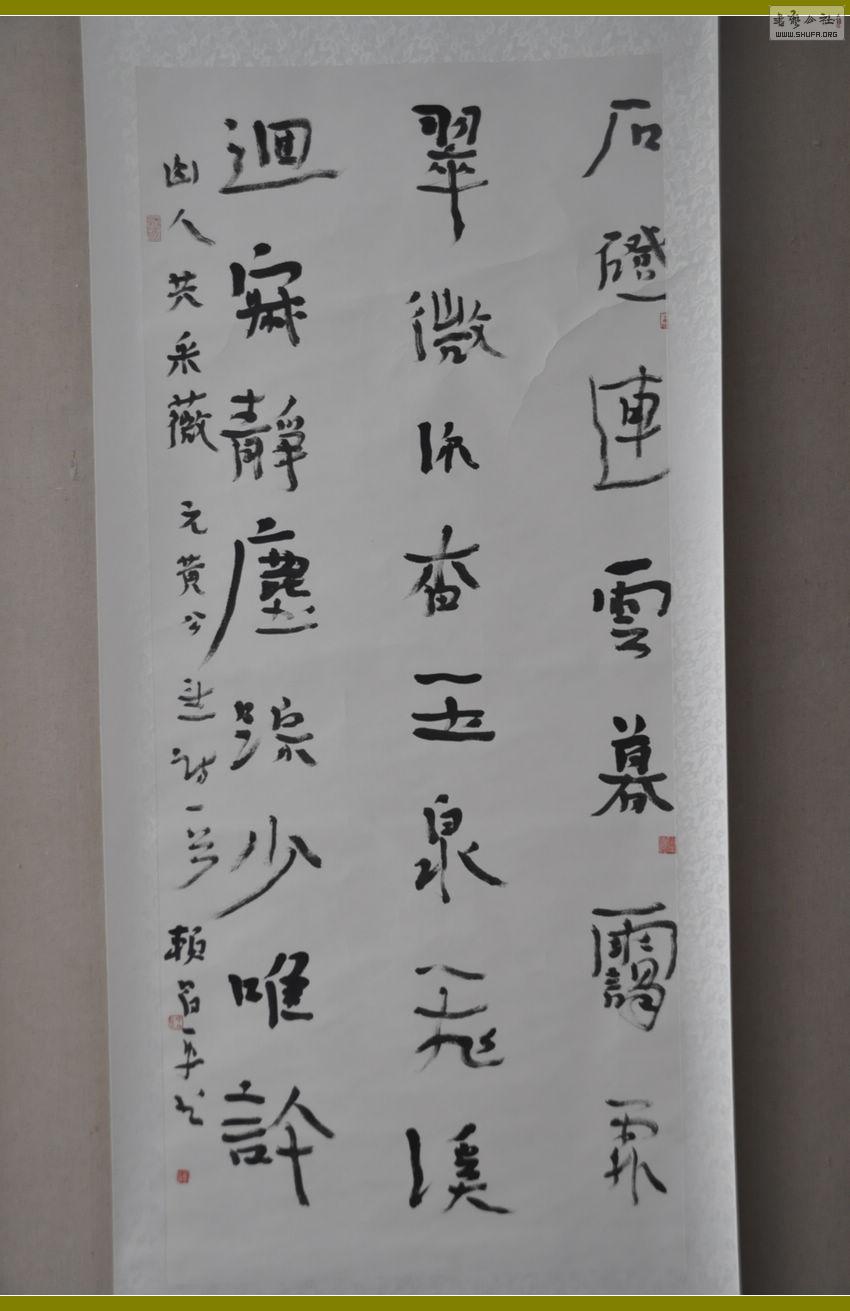 書藝公社
WWW.SHUFA.ORG
石磴連雲暮靄霏
翠微深杳玉泉飛溪
迴寂靜塵踪少唯許
幽人共采薇 元黃公望詩一首 賴